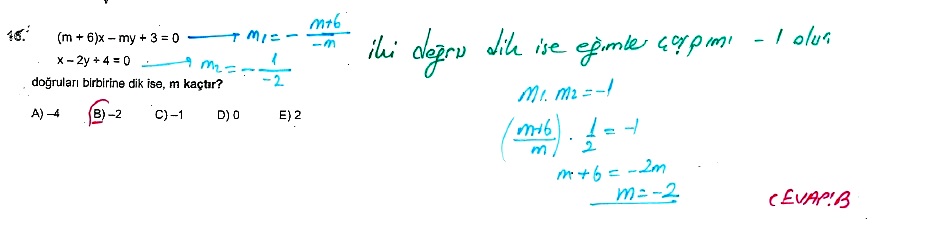 16. (m + 6)x – my + 3 = 0 → m₁ = - (m+6)/(-m)
x – 2y + 4 = 0 → m₂ = - 1/(-2)
doğruları birbirine dik ise, m kaçtır?
A) –4 B) –2 C) –1 D) 0 E) 2
iki doğru dik ise eğimler çarpımı -1 olur
m₁. m₂ = -1
((m+6)/m) . 1/2 = -1
m + 6 = -2m
m = -2
CEVAP: B